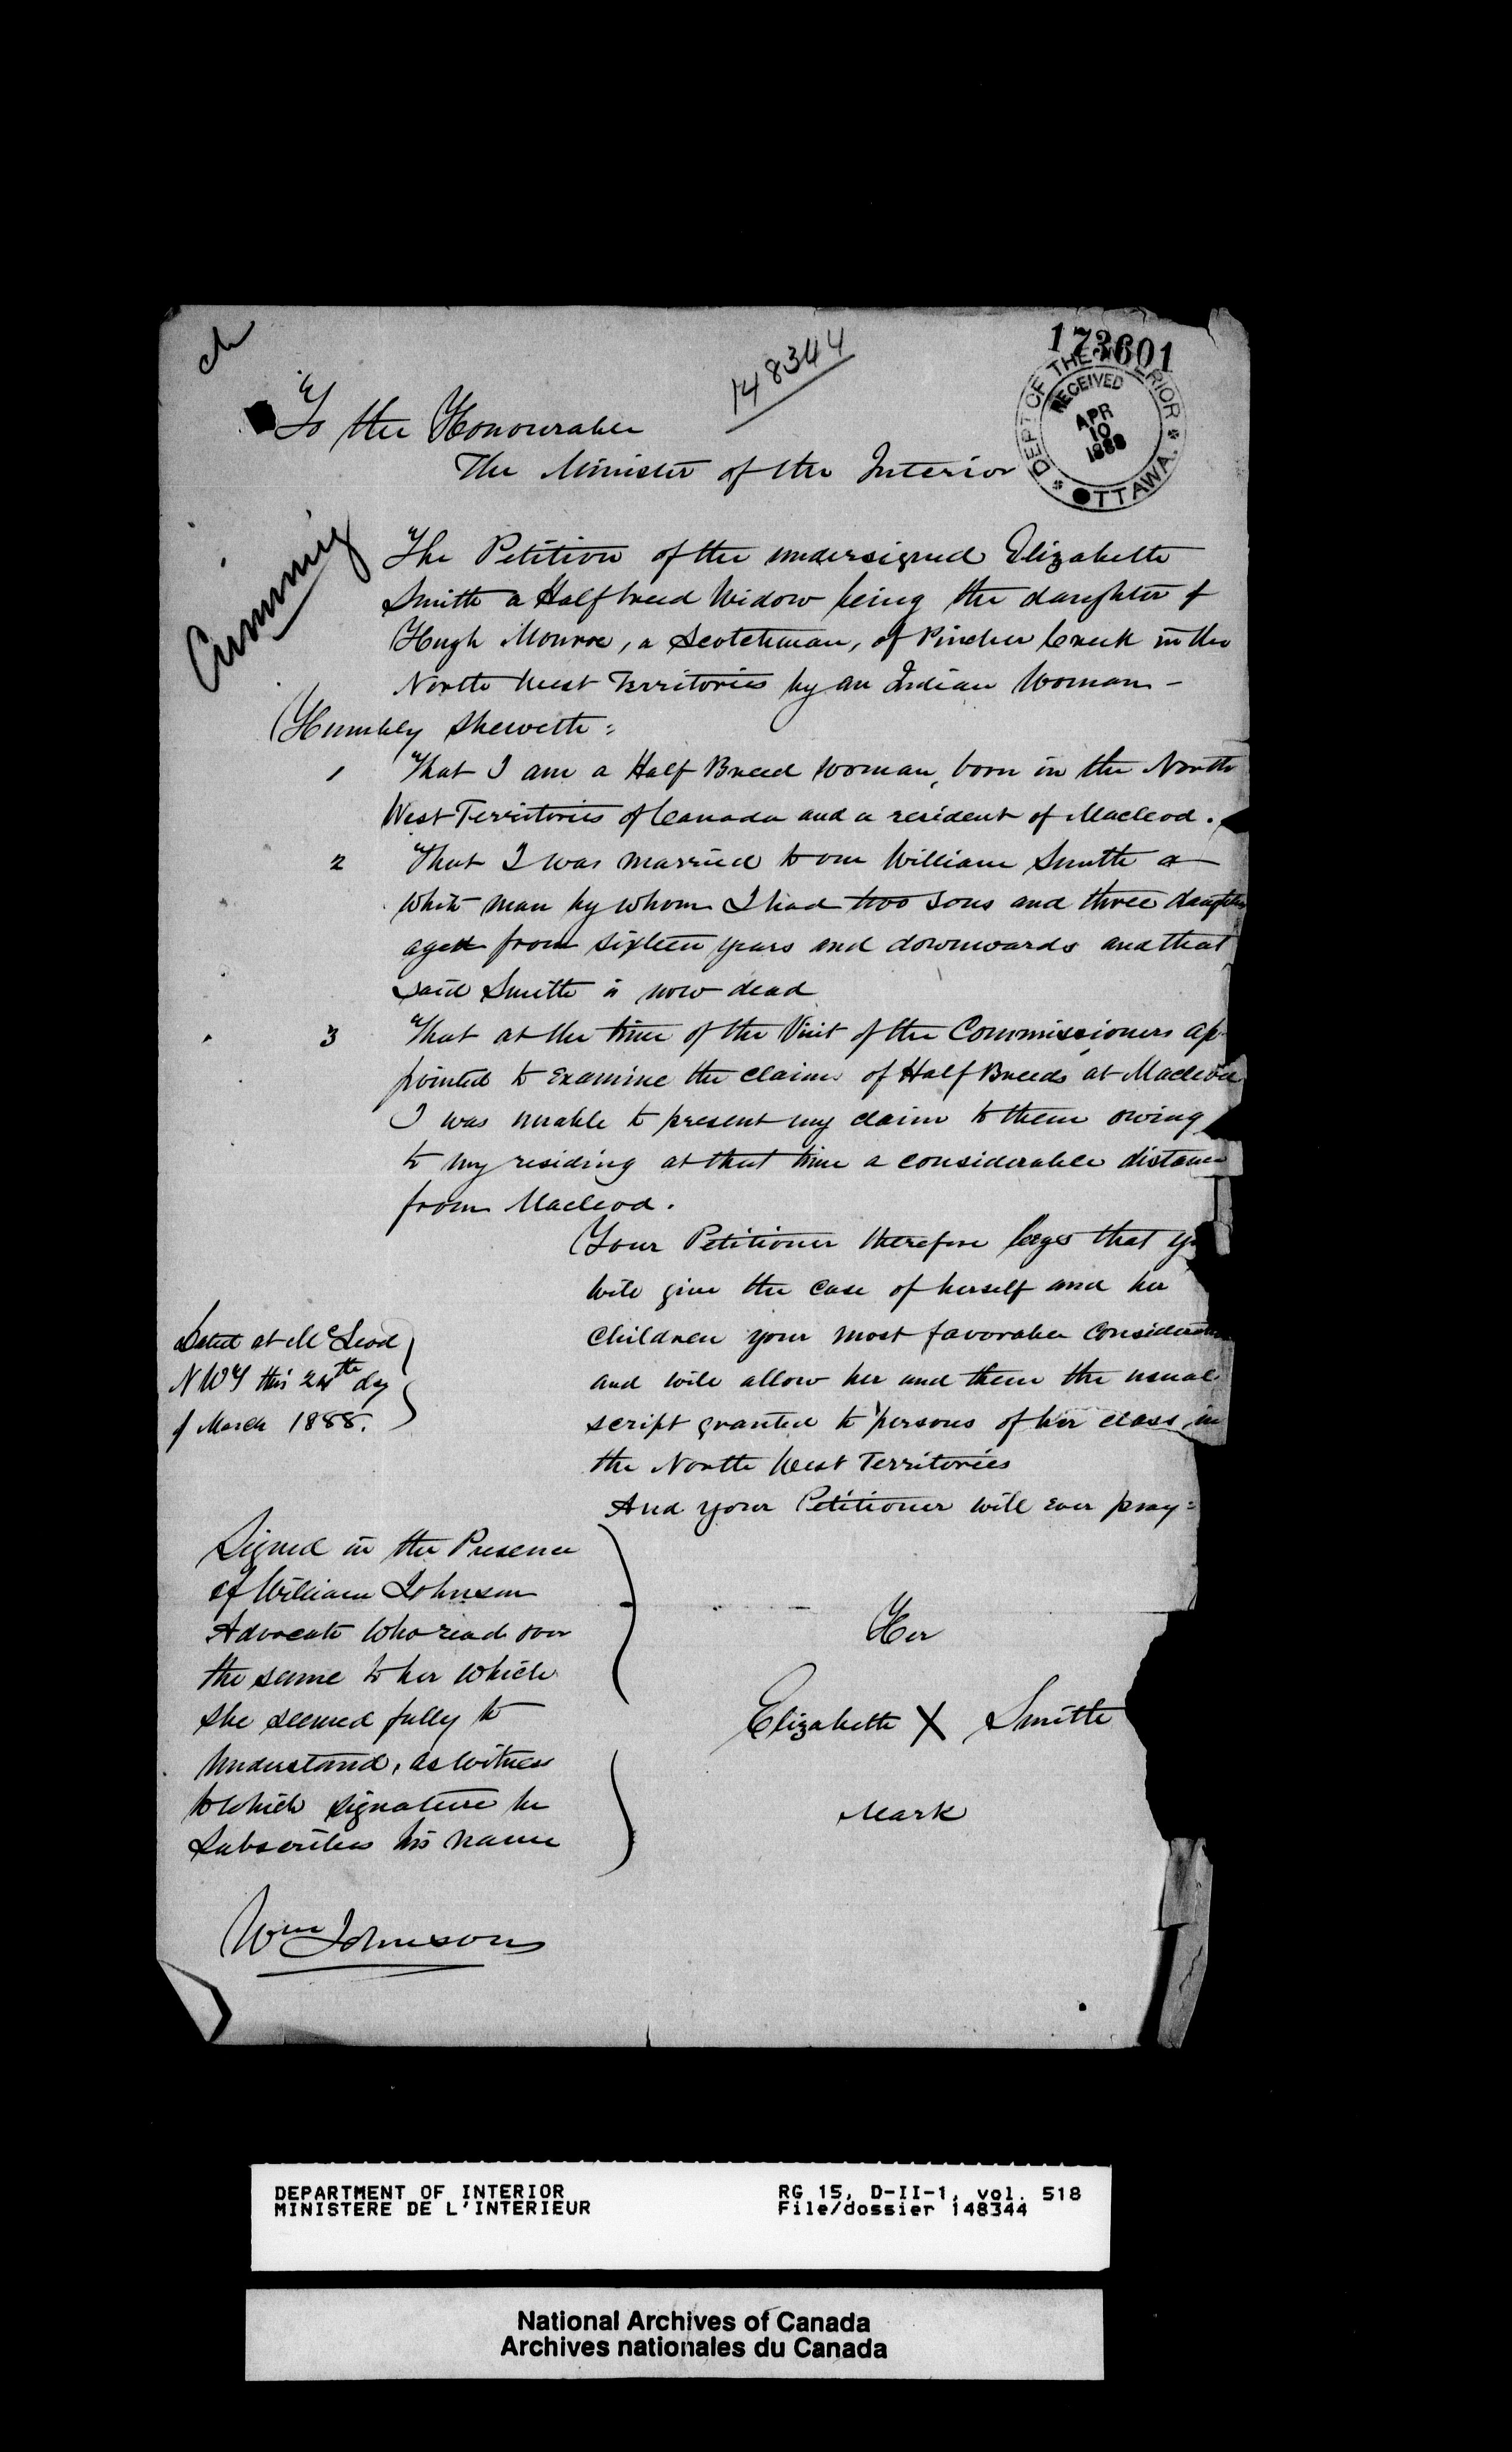 ch
148344
173601
DEPT OF THE INTERIOR
RECEIVED
APR
10
1888
OTTAWA.
To the Honourable
The Minister of the Interior
Cumming
The Petition of the undersigned Elizabeth
Smith a Halfbreed Widow being the daughter of
Hugh Monroe, a Scotchman, of Pincher Creek in the
North West Territories by an Indian Woman -
Humbly Sheweth:
1 That I am a Half Breed woman, born in the North
West Territories of Canada and a resident of Macleod.
2 That I was married to one William Smith a
white man by whom I had two sons and three daughters
aged from sixteen years and downwards and that
said Smith is now dead
3 That at the time of the Visit of the Commissioners ap-
pointed to examine the claims of Half Breeds at Macleod
I was unable to present my claim to them owing
to my residing at that time a considerable distance
from Macleod.
Your Petitioner therefore begs that you
will give the case of herself and her
Children your most favorable Consideration
and will allow her and them the usual
script granted to persons of her class in
the North West Territories
And your Petitioner will ever pray=
Dated at McLeod
NWT this 24th day
of March 1888.
Signed in the Presence
of William Johnson
Advocate who read over
the same to her which
she seemed fully to
understand, as witness
to which signature he
subscribes his name
Wm Johnson
Her
Elizabeth X Smith
Mark
DEPARTMENT OF INTERIOR
MINISTERE DE L'INTERIEUR
RG 15, D-II-1, vol. 518
File/dossier 148344
National Archives of Canada
Archives nationales du Canada